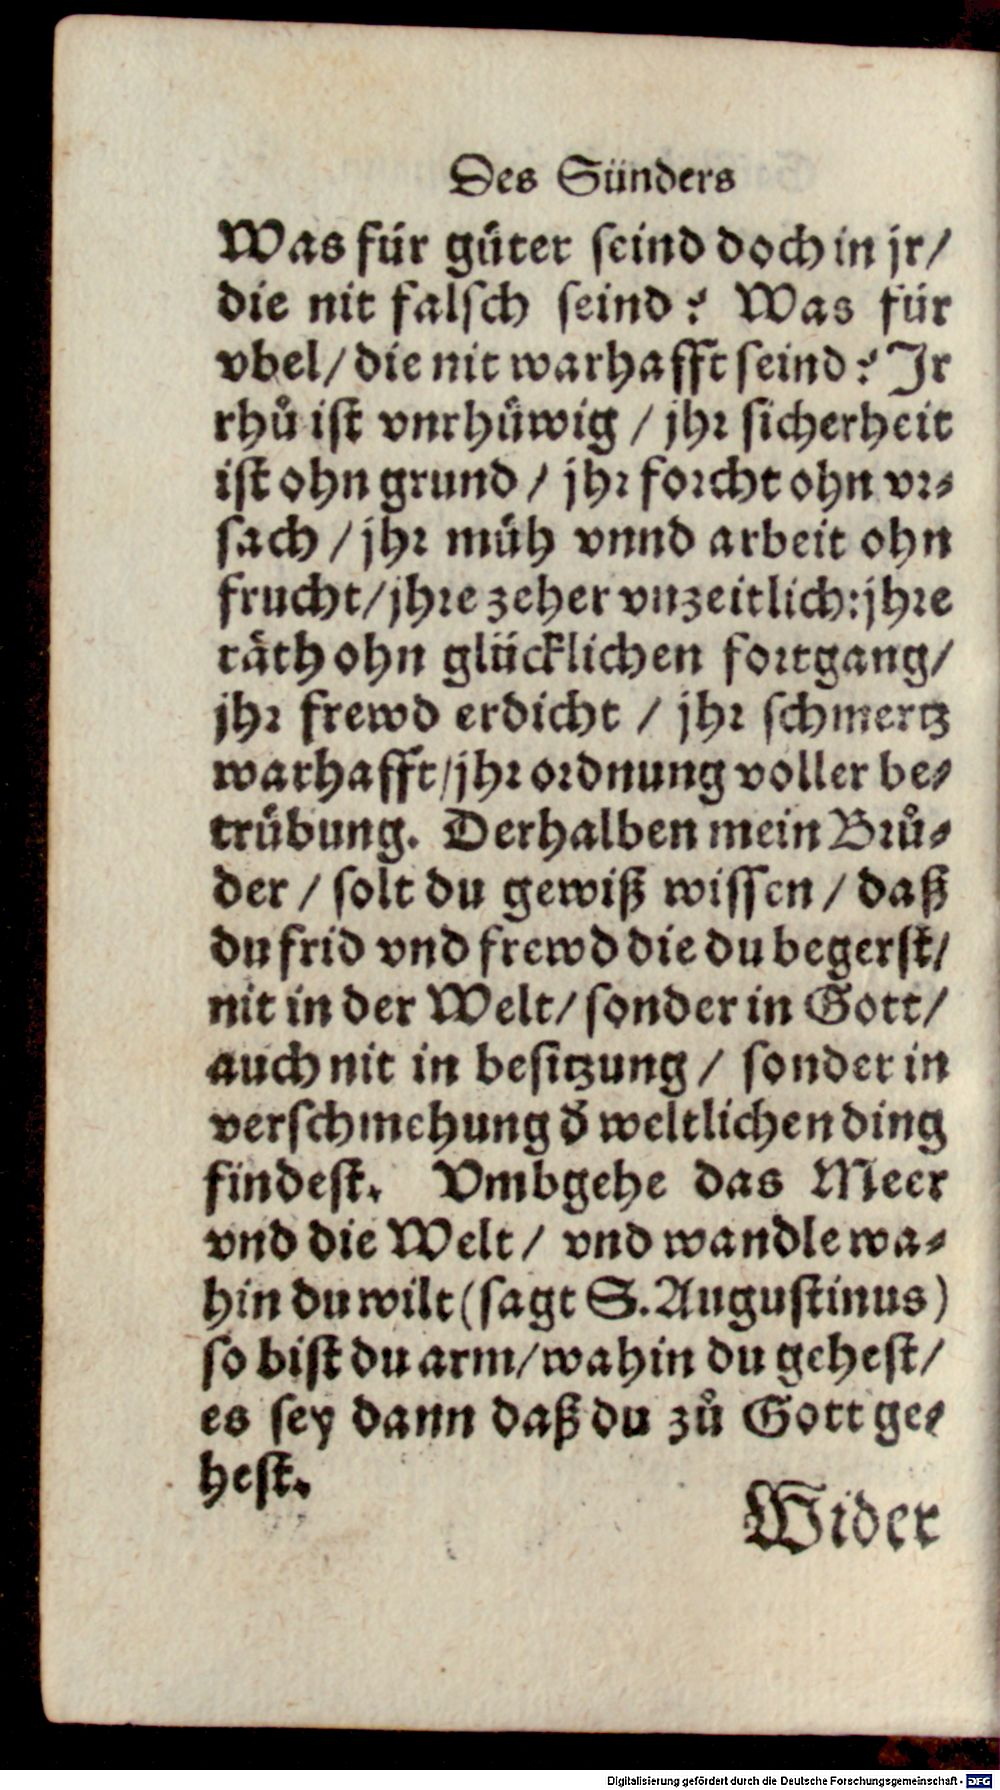 Des Sünders
Was für güter seind doch in jr/
die nit falsch seind? Was für
vbel/ die nit warhafft seind? Jr
rhů ist vnrhüwig / jhr sicherheit
ist ohn grund / jhr forcht ohn vr-
sach / jhr müh vnnd arbeit ohn
frucht/ jhre zeher vnzeitlich: jhre
räth ohn glücklichen fortgang/
jhr frewd erdicht / jhr schmertz
warhafft/ jhr ordnung voller be-
trübung. Derhalben mein Brů-
der / solt du gewiß wissen / daß
du frid vnd frewd die du begerst/
nit in der Welt/ sonder in Gott/
auch nit in besitzung / sonder in
verschmehung d̕ weltlichen ding
findest. Vmbgehe das Meer
vnd die Welt / vnd wandle wa-
hin du wilt (sagt S. Augustinus)
so bist du arm/ wahin du gehest/
es sey dann daß du zů Gott ge-
hest.
Wider
Digitalisierung gefördert durch die Deutsche Forschungsgemeinschaft - DFG